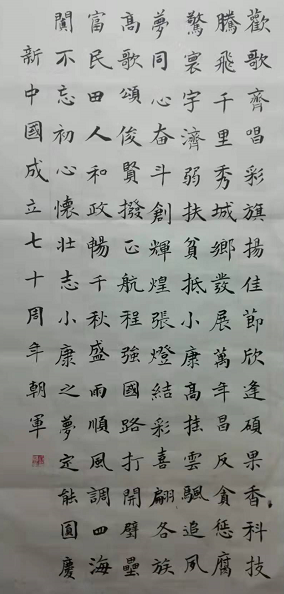 歡歌齊唱彩旗揚佳節欣逢碩果香科技
騰飛千里秀城鄉發展萬年昌反貪懲腐
驚寰宇濟弱扶貧抵小康高挂雲颿追夙
夢同心奋斗創輝煌張燈結彩喜翩各族
高歌頌俊賢撥正航程強國路打開壁壘
富民田人和政暢千秋盛雨順風調四海
闐不忘初心懷壯志小康之夢定能圓慶
新中國成立七十周年朝軍